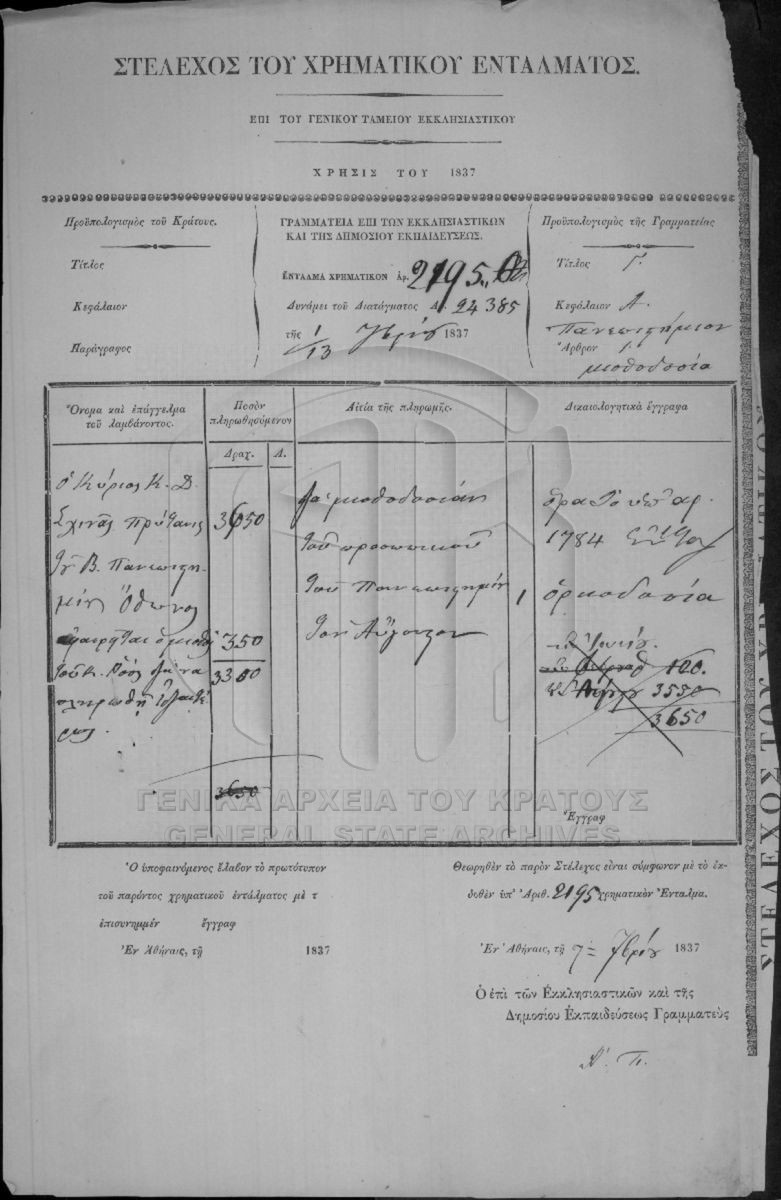 ΣΤΕΛΕΧΟΣ ΤΟΥ ΧΡΗΜΑΤΙΚΟΥ ΕΝΤΑΛΜΑΤΟΣ.
ΕΠΙ ΤΟΥ ΓΕΝΙΚΟΥ ΤΑΜΕΙΟΥ ΕΚΚΛΗΣΙΑΣΤΙΚΟΥ
ΧΡΗΣΙΣ ΤΟΥ 1837
Προϋπολογισμὸς τοῦ Κράτους.
Τίτλος
Κεφάλαιον
Παράγραφος
ΓΡΑΜΜΑΤΕΙΑ ΕΠΙ ΤΩΝ ΕΚΚΛΗΣΙΑΣΤΙΚΩΝ
ΚΑΙ ΤΗΣ ΔΗΜΟΣΙΟΥ ΕΚΠΑΙΔΕΥΣΕΩΣ.
ΕΝΤΑΛΜΑ ΧΡΗΜΑΤΙΚΟΝ ἀρ. 2195
Δυνάμει τοῦ Διατάγματος Ἀρ. 24385
τῆς 1/13 7βρίου 1837
Προϋπολογισμὸς τῆς Γραμματείας
Τίτλος Γ.
Κεφάλαιον Α.
Πανεπιστήμιον
Ἄρθρον 1.
μισθοδοσία
Ὄνομα καὶ ἐπάγγελμα
τοῦ λαμβάνοντος.
Ποσὸν
πληρωθησόμενον
Δραχ. Λ.
Αἰτία τῆς πληρωμῆς.
Δικαιολογητικὰ ἔγγραφα
ὁ Κύριος Κ. Δ.
Σχινᾶς πρύτανις 3650
τοῦ Β. Πανεπιστη-
μίου Ὄθωνος
350
3300
3650
μισθοδοσίαν
τοῦ προσωπικοῦ
τοῦ Πανεπιστημίου
τὸν Αὔγουστον
1784
1 μισθοδοσία
120.
3530
3650
Ἔγγραφ
ΓΕΝΙΚΑ ΑΡΧΕΙΑ ΤΟΥ ΚΡΑΤΟΥΣ
GENERAL STATE ARCHIVES
Ὁ ὑποφαινόμενος ἔλαβον τὸ πρωτότυπον
τοῦ παρόντος χρηματικοῦ ἐντάλματος μὲ τ
ἐπισυνημμέν ἔγγραφ
Ἐν Ἀθήναις, τῇ 1837
Θεωρηθὲν τὸ παρὸν Στέλεχος εἶναι σύμφωνον μὲ τὸ ἐκ-
δοθὲν ὑπ' Ἀριθ. 2195 χρηματικὸν Ἔνταλμα.
Ἐν Ἀθήναις, τῇ 7 7βρίου 1837
Ὁ ἐπὶ τῶν Ἐκκλησιαστικῶν καὶ τῆς
Δημοσίου Ἐκπαιδεύσεως Γραμματεὺς
Α. Π.
ΣΤΕΛΕΧΟΣ ΤΟΥ ΧΡΗΜΑΤΙΚΟΥ